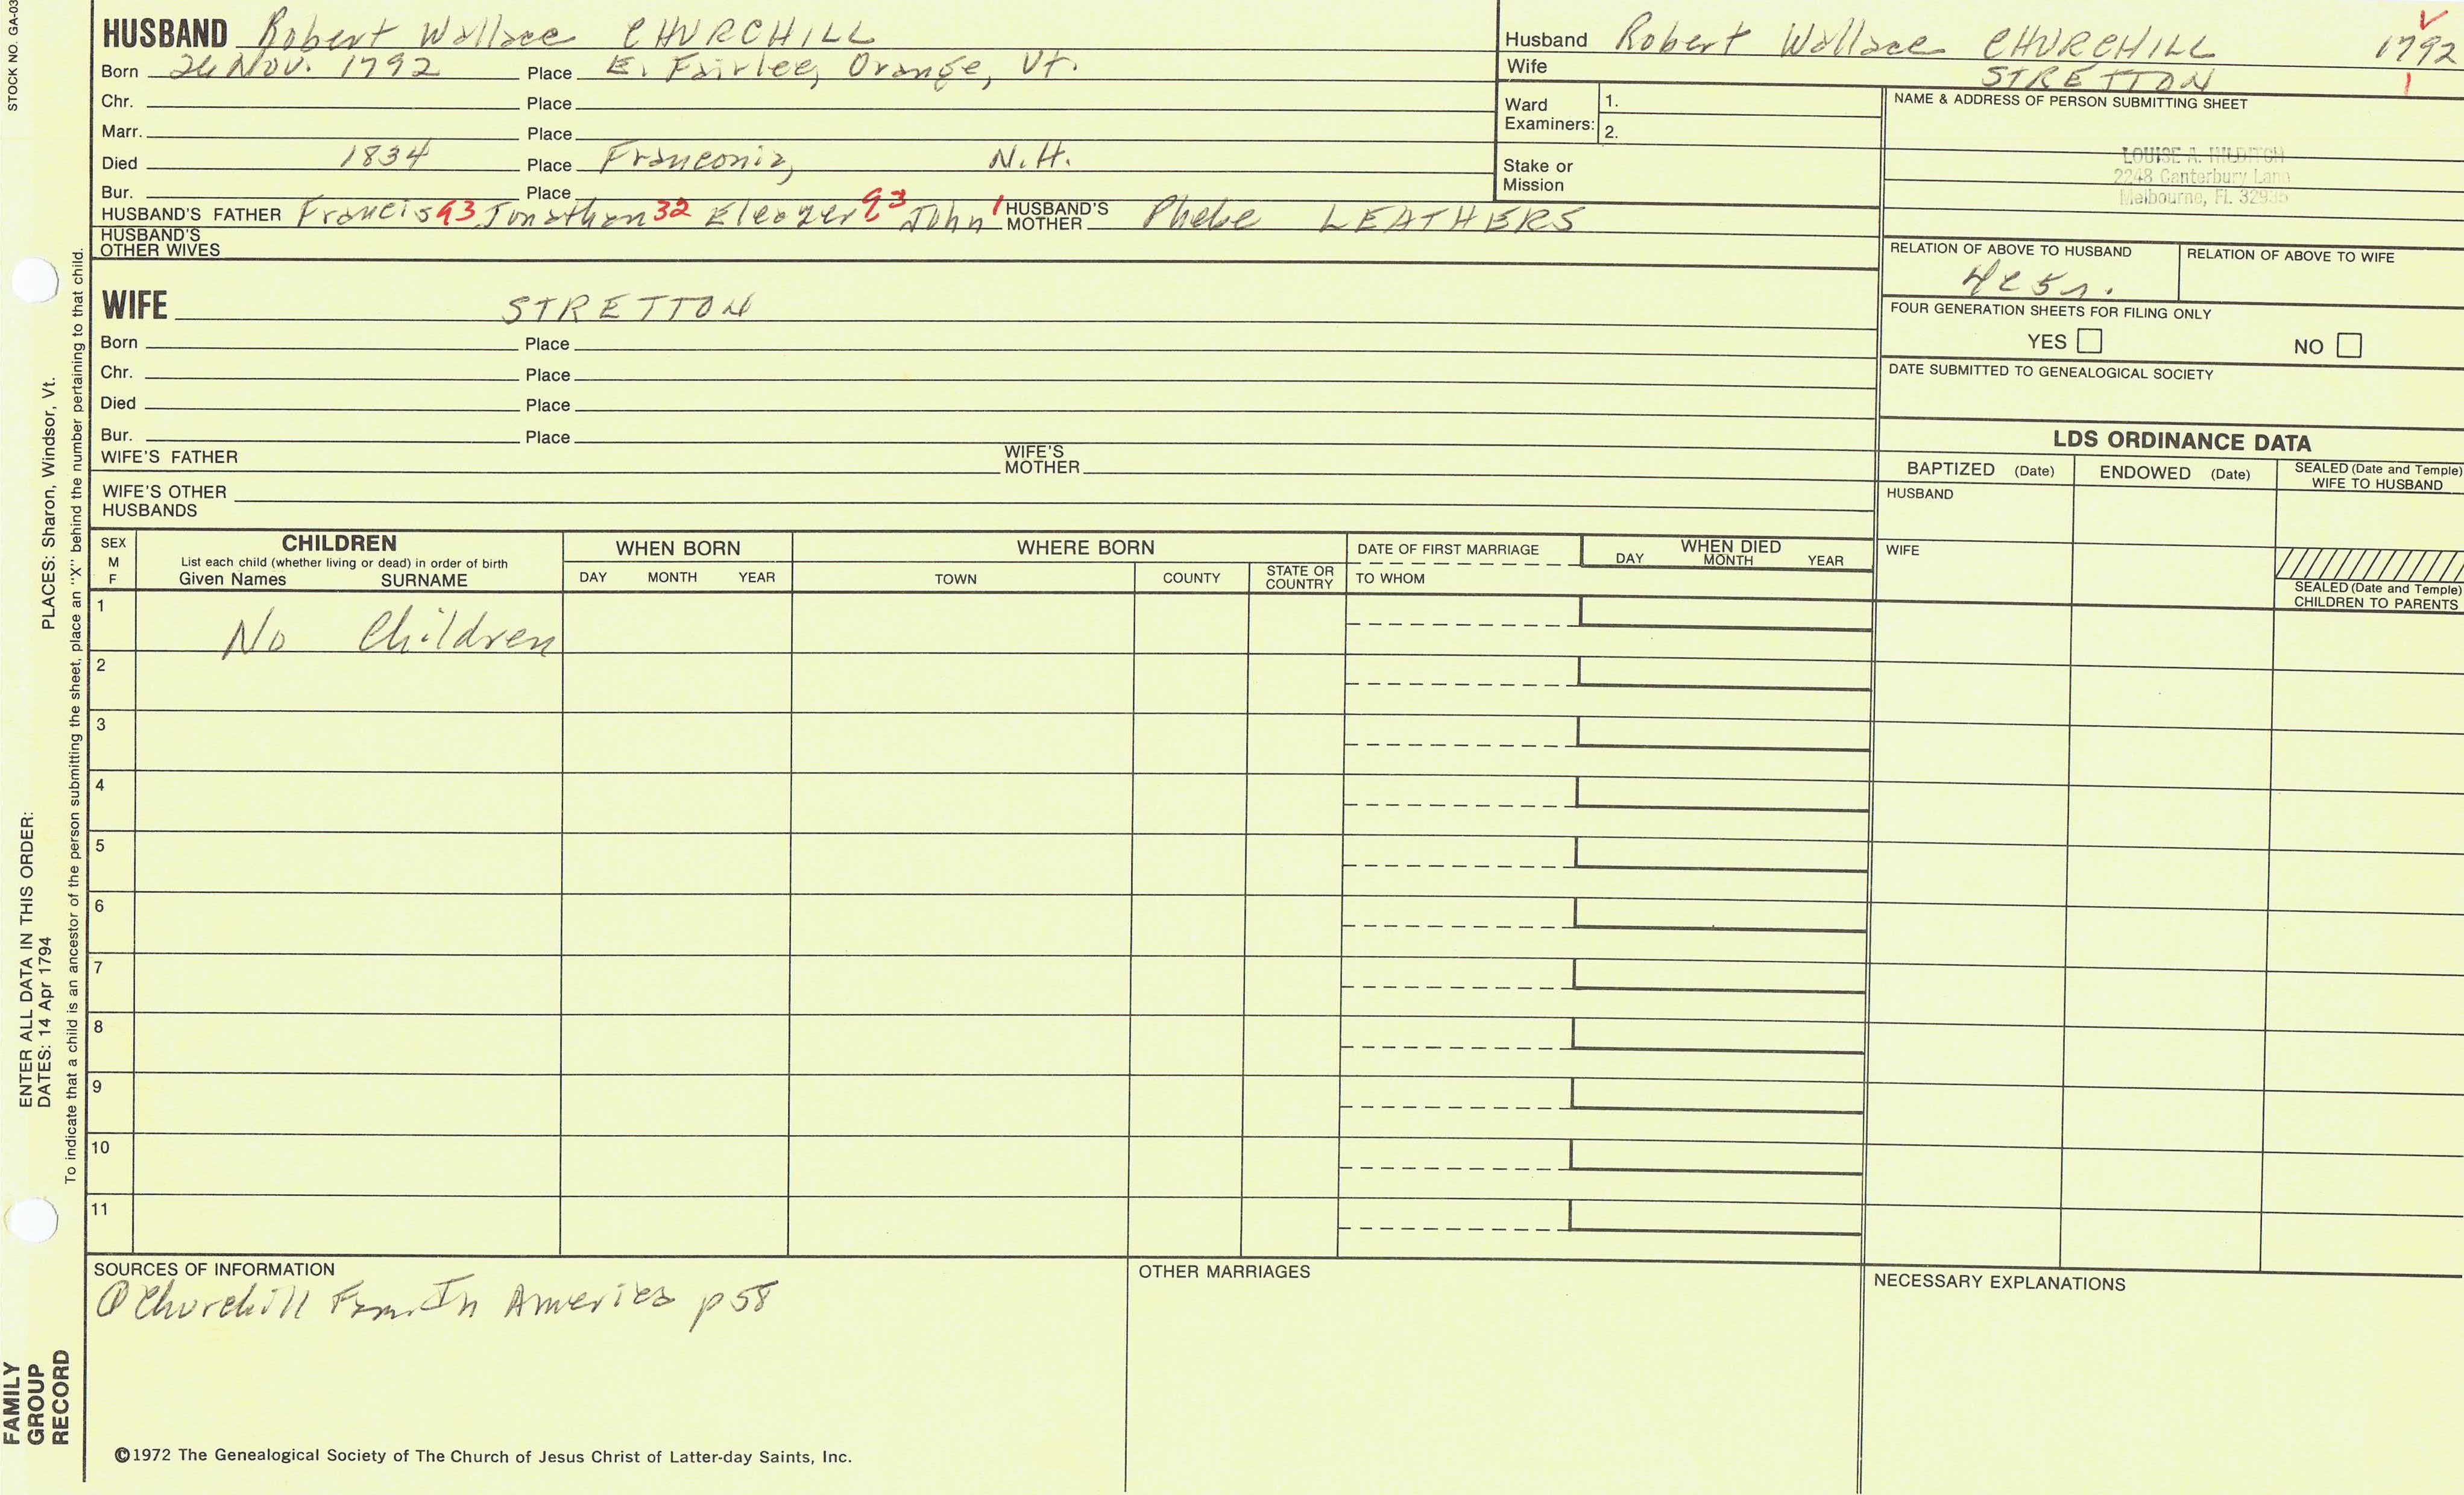 STOCK NO. GA-03
HUSBAND Robert Wallace CHURCHILL
Born 26 Nov. 1792 Place E. Fairlee, Orange, Vt.
Chr. Place
Marr. Place
Died 1834 Place Franconia, N.H.
Bur. Place
HUSBAND'S FATHER Francis 93 Jonathan 32 Eleazer 93 John 1 HUSBAND'S MOTHER Phebe LEATHERS
HUSBAND'S OTHER WIVES
WIFE STRETTON
Born Place
Chr. Place
Died Place
Bur. Place
WIFE'S FATHER WIFE'S MOTHER
WIFE'S OTHER HUSBANDS
Husband Robert Wallace CHURCHILL 1792
Wife STRETTON 1
Ward Examiners: 1.
2.
Stake or Mission
NAME & ADDRESS OF PERSON SUBMITTING SHEET
LOUISE A. HILDITCH
2248 Canterbury Lane
Melbourne, Fl. 32935
RELATION OF ABOVE TO HUSBAND
RELATION OF ABOVE TO WIFE
FOUR GENERATION SHEETS FOR FILING ONLY
YES NO
DATE SUBMITTED TO GENEALOGICAL SOCIETY
LDS ORDINANCE DATA
BAPTIZED (Date) ENDOWED (Date) SEALED (Date and Temple) WIFE TO HUSBAND
HUSBAND
WIFE
SEALED (Date and Temple) CHILDREN TO PARENTS
SEX M F
CHILDREN
List each child (whether living or dead) in order of birth
Given Names SURNAME
WHEN BORN
DAY MONTH YEAR
WHERE BORN
TOWN COUNTY STATE OR COUNTRY
DATE OF FIRST MARRIAGE
TO WHOM
WHEN DIED
DAY MONTH YEAR
1 No Children
2
3
4
5
6
7
8
9
10
11
SOURCES OF INFORMATION
① Churchill Fam. In America p 58
OTHER MARRIAGES
NECESSARY EXPLANATIONS
©1972 The Genealogical Society of The Church of Jesus Christ of Latter-day Saints, Inc.
To indicate that a child is an ancestor of the person submitting the sheet, place an "X" behind the number pertaining to that child.
ENTER ALL DATA IN THIS ORDER:
DATES: 14 Apr 1794 PLACES: Sharon, Windsor, Vt.
FAMILY
GROUP
RECORD